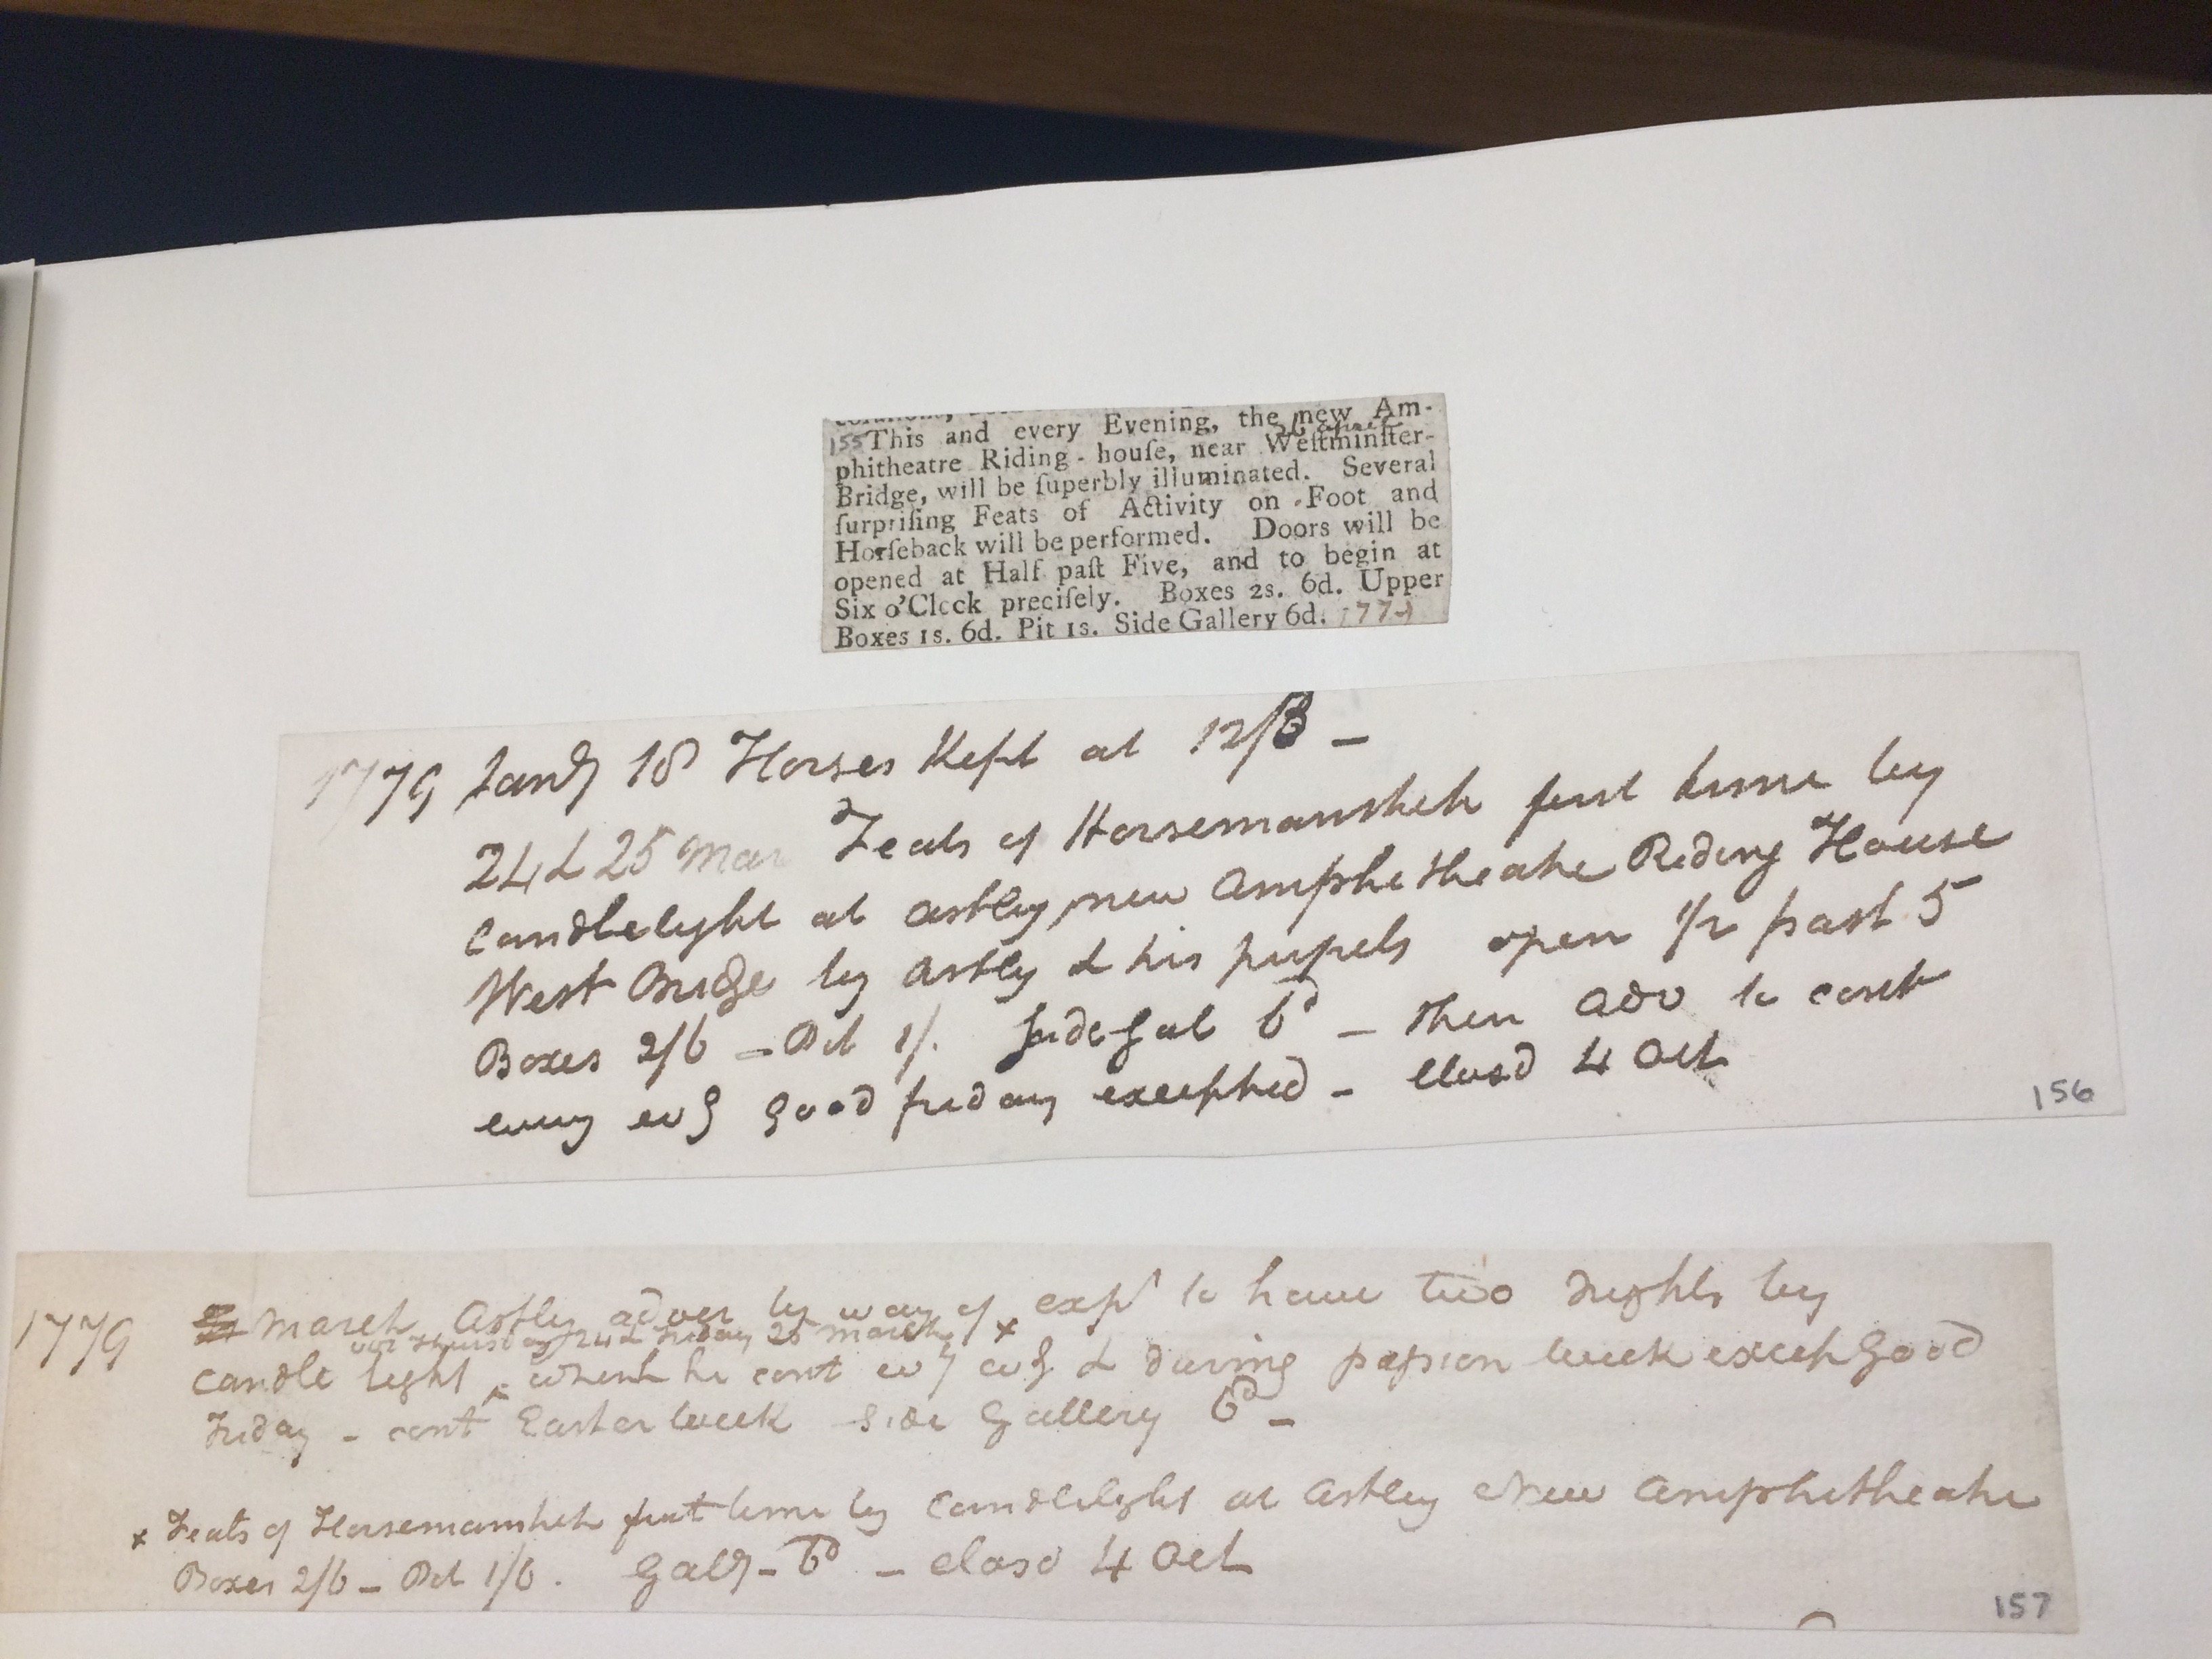 155 This and every Evening, the new Am-
26 April
phitheatre Riding-houſe, near Weſtminſter-
Bridge, will be ſuperbly illuminated. Several
ſurpriſing Feats of Activity on Foot and
Horſeback will be performed. Doors will be
opened at Half paſt Five, and to begin at
Six o'Clock preciſely. Boxes 2s. 6d. Upper
Boxes 1s. 6d. Pit 1s. Side Gallery 6d. 1779
1779 Jany 18 Horses Kept at 12/
24 & 25 Mar Feats of Horsemanship first time by
Candlelight at Astley new Amphitheatre Riding House
West Bridge by Astley & his pupils open 1/2 past 5
Boxes 2/6 – Pit 1/. Side Gal 6d – then adv to cont
every evg good friday excepted – Closd 4 Oct
156
1779 March Astley adver by way of × expt to have two nights by
viz Thursday 24 & Friday 25 March
candle light ‸ which he cont evy evg & during passion week except Good
Friday – cont Easter week Side Gallery 6d –
× Feats of Horsemanship first time by Candlelight at Astley New Amphitheatre
Boxes 2/6 – Pit 1/6. Gally – 6d – closd 4 Oct
157